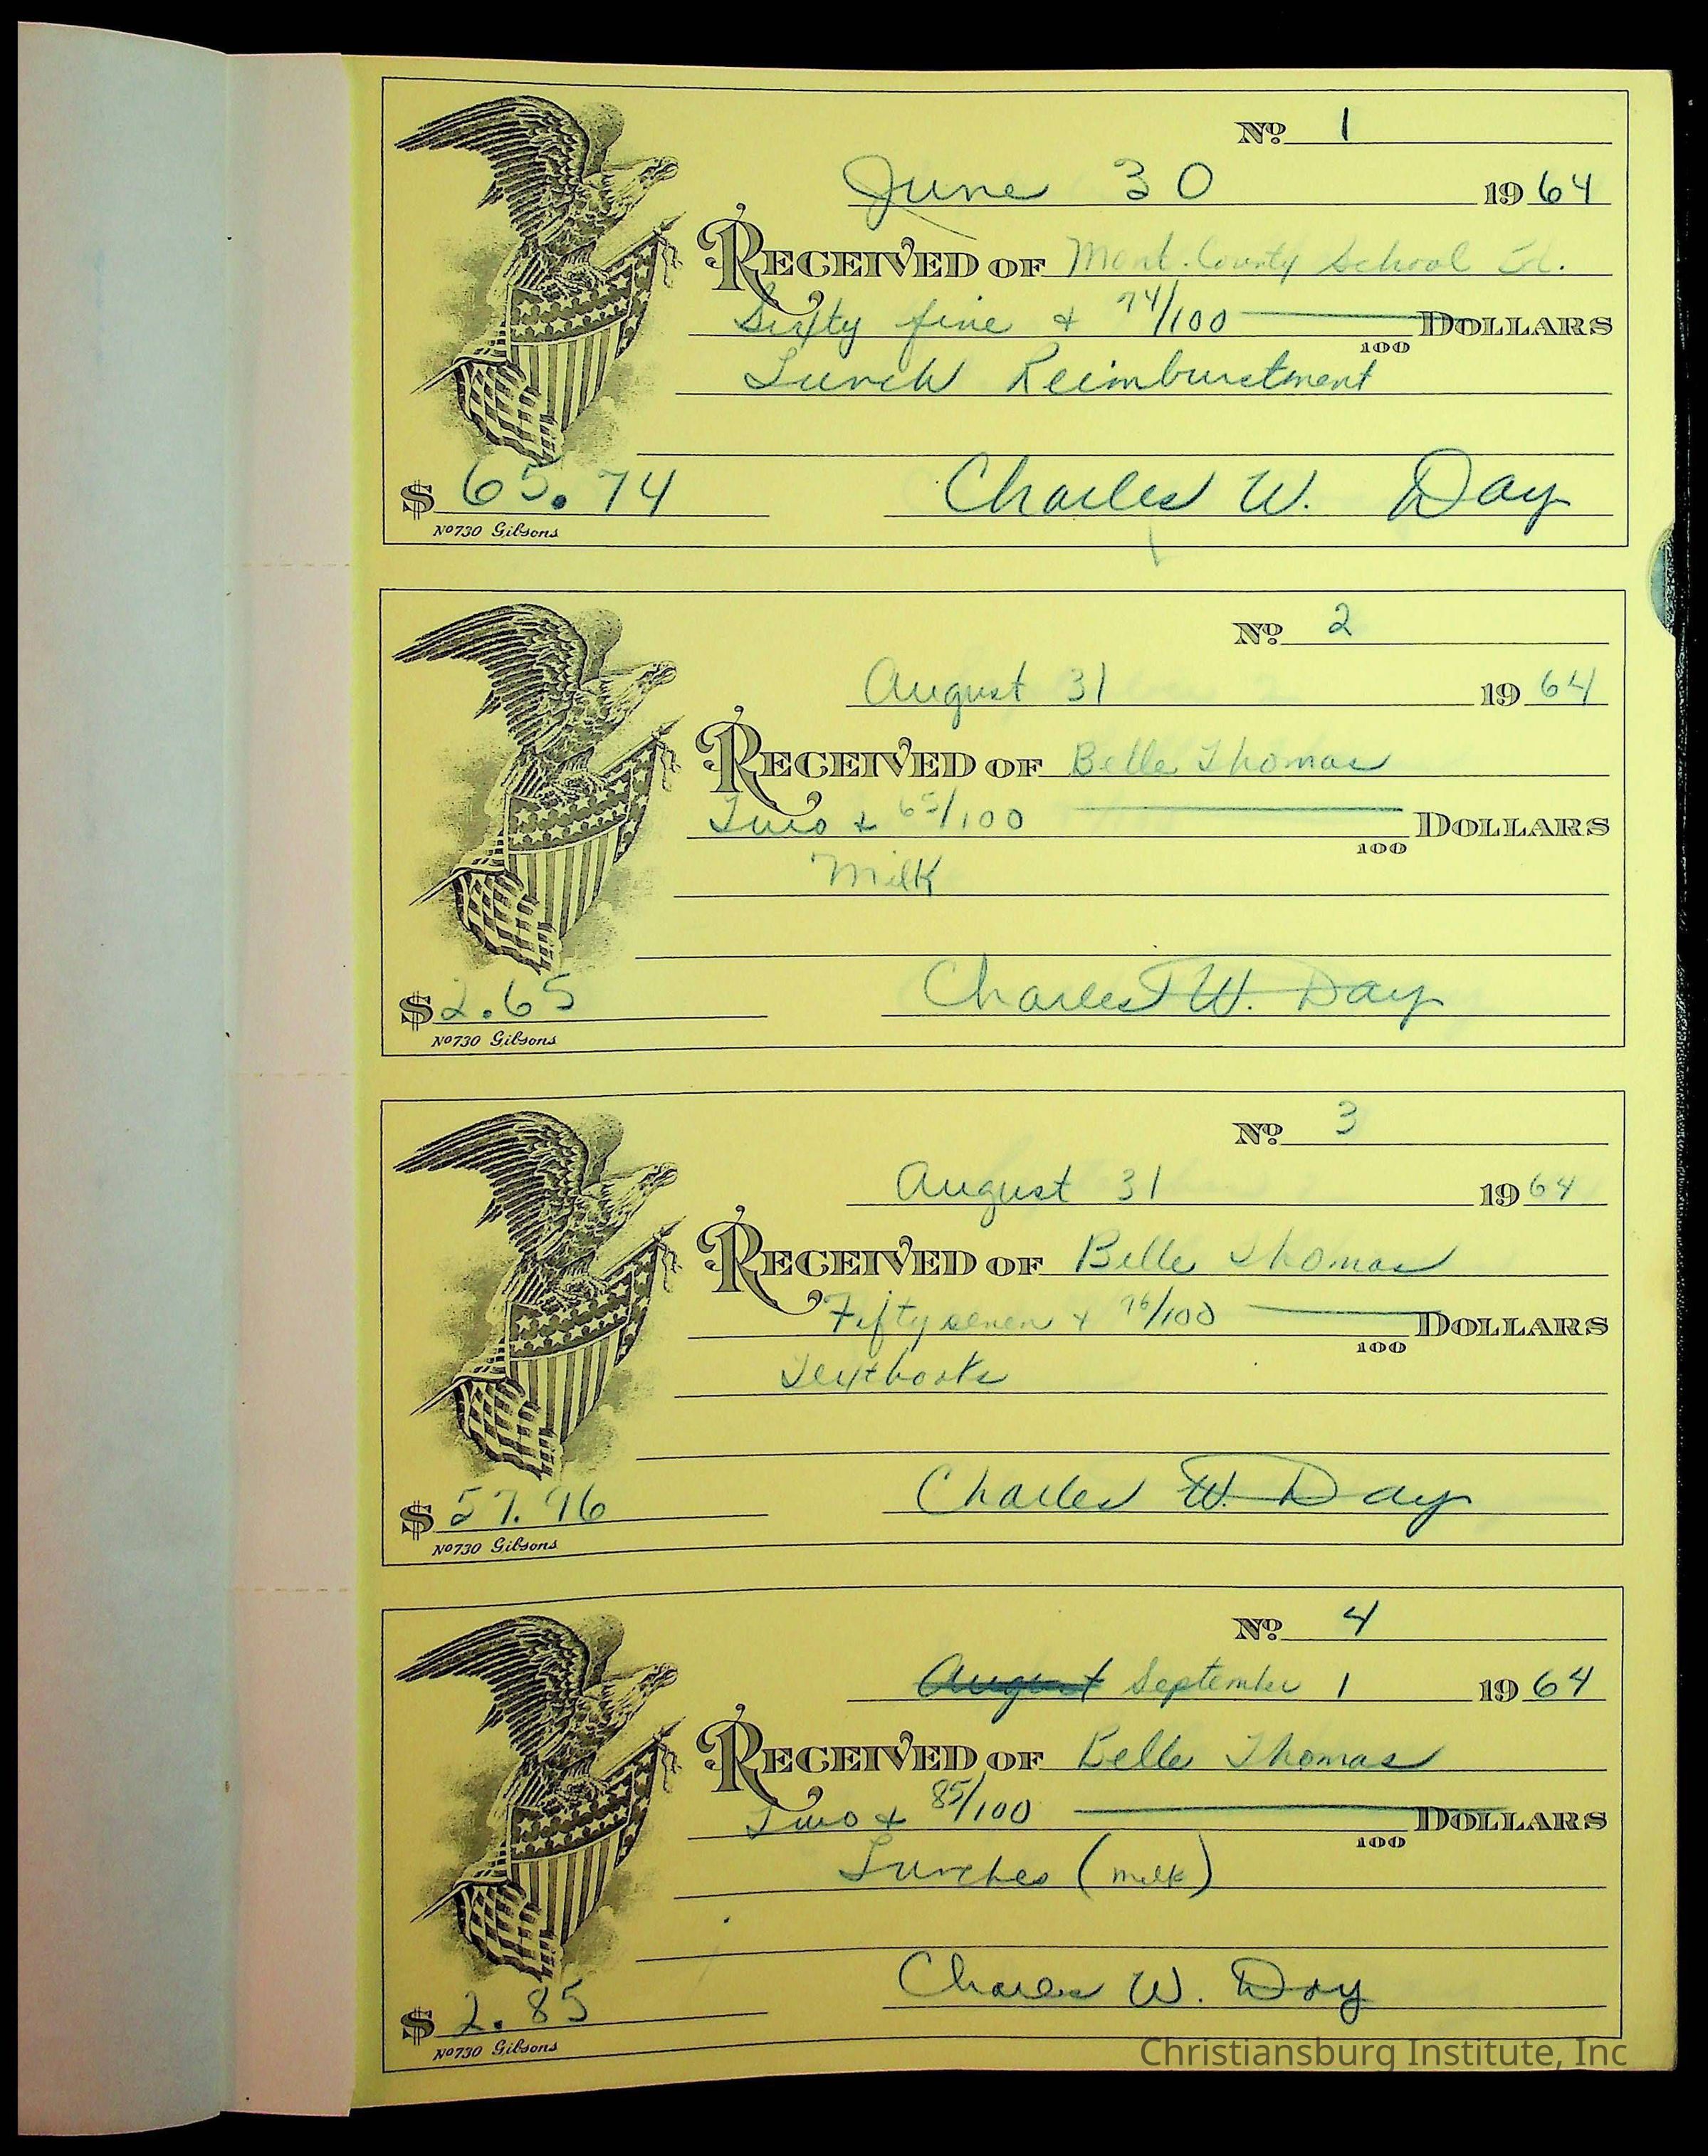 No. 1
June 30 1964
RECEIVED OF Mont. County School Bd.
Sixty five & 74/100 DOLLARS
100
Lunch Reimburstment
$ 65.74 Charles W. Day
No 730 Gibsons
No. 2
August 31 1964
RECEIVED OF Belle Thomas
Two & 65/100 DOLLARS
100
Milk
$ 2.65 Charles W. Day
No 730 Gibsons
No. 3
August 31 1964
RECEIVED OF Belle Thomas
Fifty seven & /100 DOLLARS
100
Textbooks
$ Charles W. Day
No 730 Gibsons
No. 4
August September 1 1964
RECEIVED OF Belle Thomas
Two & 85/100 DOLLARS
100
Lunches (milk)
$ 2.85 Charles W. Day
No 730 Gibsons
Christiansburg Institute, Inc